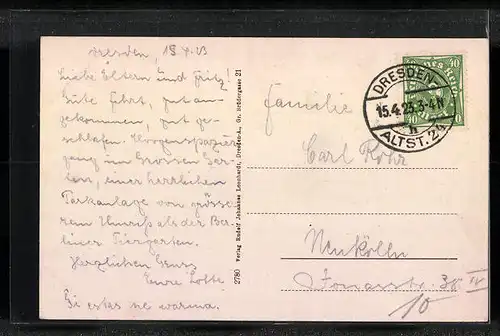 Dresden, 15.4.23
Liebe Eltern und Fritz!
Gute Fahrt, gut an-
gekommen, gut ge-
schlafen. Morgenspazier-
gang im Grossen Gar-
ten, einer herrlichen
Parkanlage von grösse-
rem Umriss als der Ber-
liner Tiergarten.
Herzlichen Gruss
Eure Lotte.
2780 Verlag Rudolf Johannes Leonhardt, Dresden-A., Gr. Brüdergasse 21
40 Deutsches Reich 40
DRESDEN
15.4.23.3-4N
h
ALTST. 24
Familie
Carl Rohr
Neukölln
Jonasstr. 38 IV
10